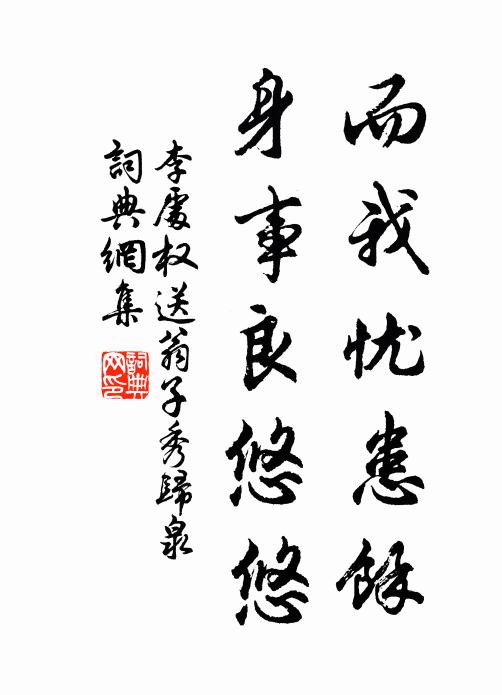 而我忧患馀
身事良悠悠
李處权送翁子秀歸泉
詞典網集
詞典
网印